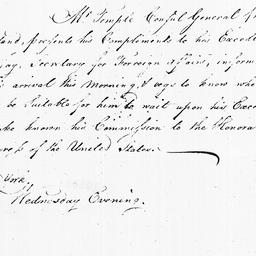 Mr. Temple Consul General
land, presents his Compliments to his Excell
Jay, Secretary for Forreign Affairs, inform
arrival this Morning, & begs to know whe
be Suitable for him to wait upon his Exce
make known his Commission to the Honora
gress of the United States.
York,
Wednesday Evening.